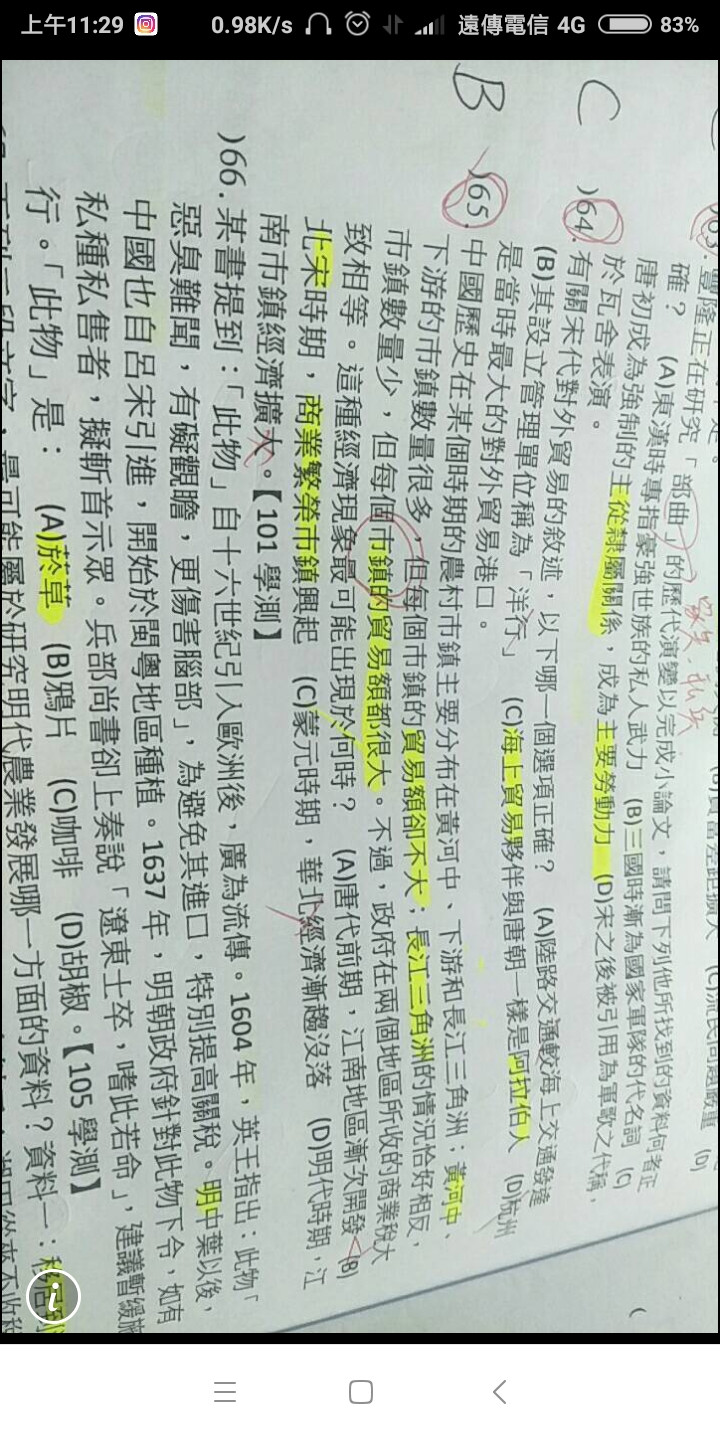 上午11:29
0.98K/s
遠傳電信 4G
83%
確? (A)東漢時專指豪強世族的私人武力 (B)三國時漸為國家軍隊的代名詞 (C)
唐初成為強制的主從隸屬關係,成為主要勞動力 (D)宋之後被引用為軍歌之代稱,
於瓦舍表演。
C )64.有關宋代對外貿易的敘述,以下哪一個選項正確? (A)陸路交通較海上交通發達
(B)其設立管理單位稱為「洋行」 (C)海上貿易夥伴與唐朝一樣是阿拉伯人 (D)杭州
是當時最大的對外貿易港口。
B )65.中國歷史在某個時期的農村市鎮主要分布在黃河中、下游和長江三角洲;黃河中、
下游的市鎮數量很多,但每個市鎮的貿易額卻不大;長江三角洲的情況恰好相反,
市鎮數量少,但每個市鎮的貿易額都很大。不過,政府在兩個地區所收的商業稅大
致相等。這種經濟現象最可能出現於何時? (A)唐代前期,江南地區漸次開發 (B)
北宋時期,商業繁榮市鎮興起 (C)蒙元時期,華北經濟漸趨沒落 (D)明代時期,江
南市鎮經濟擴大。【101 學測】
)66.某書提到:「此物」自十六世紀引入歐洲後,廣為流傳。1604 年,英王指出:此物「
惡臭難聞,有礙觀瞻,更傷害腦部」,為避免其進口,特別提高關稅。明中葉以後,
中國也自呂宋引進,開始於閩粵地區種植。1637 年,明朝政府針對此物下令,如有
私種私售者,擬斬首示眾。兵部尚書卻上奏說「遼東士卒,嗜此若命」,建議暫緩施
行。「此物」是: (A)菸草 (B)鴉片 (C)咖啡 (D)胡椒。【105 學測】